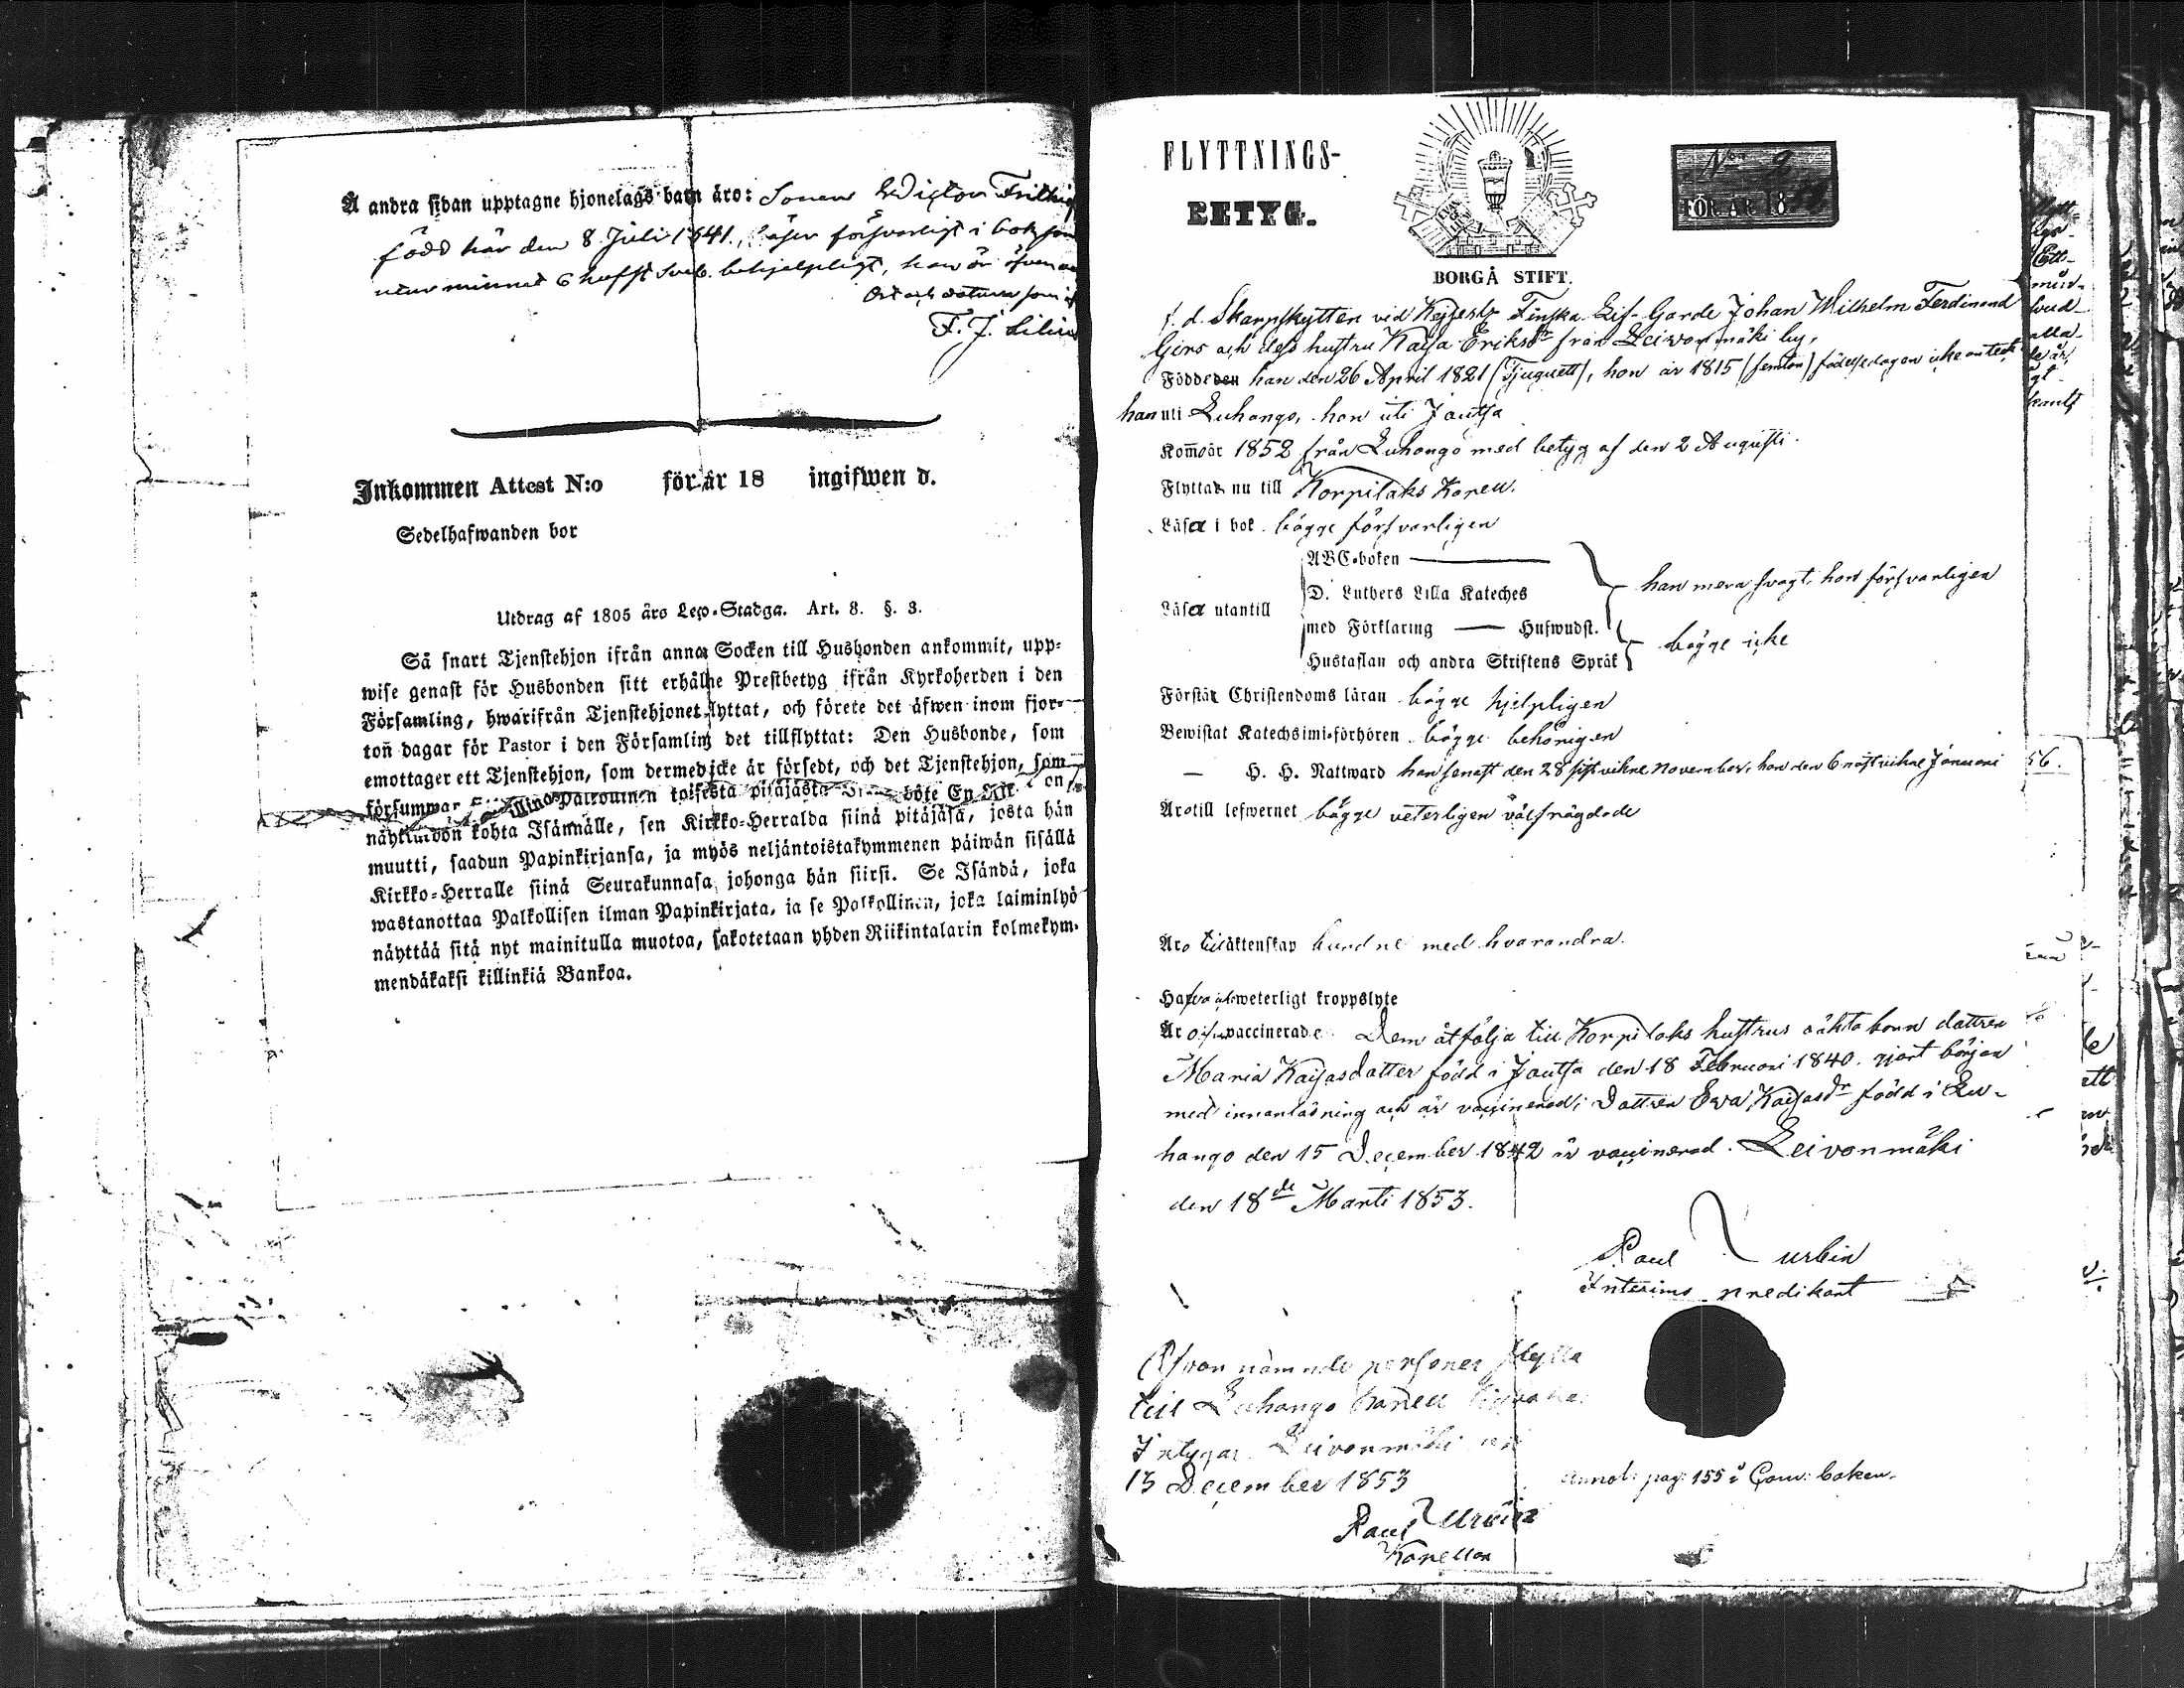 Å andra sidan upptagne hjonelags barn äro: Sonen Wictor
född här den 8 Juli 1841, läser försvarligt i bok
utur minnet 6 hufst behjelpligt, han är äfven
Ort och datum som
F. J.
Inkommen Attest N:o för år 18 ingifwen d.
Sedelhafwanden bor
Utdrag af 1805 års Lego-Stadga. Art. 8. §. 3.
Så snart Tjenstehjon ifrån annan Socken till Husbonden ankommit, upp-
wise genast för Husbonden sitt erhållne Prestbetyg ifrån Kyrkoherden i den
Församling, hwarifrån Tjenstehjonet flyttat, och förete det äfwen inom fjor-
ton dagar för Pastor i den Församling det tillflyttat: Den Husbonde, som
emottager ett Tjenstehjon, som dermed icke är försedt, och det Tjenstehjon, som
försummar toisesta pitäjästä böte En
kohta Isännälle, sen Kirkko-Herralda siinä pitäjäsä, josta hän
muutti, saadun Papinkirjansa, ja myös neljäntoistakymmenen päiwän sisällä
Kirkko-Herralle siinä Seurakunnasa johonga hän siirsi. Se Isändä, joka
wastanottaa Palkollisen ilman Papinkirjata, ja se Palkollinen, joka laiminlyö
näyttää sitä nyt mainitulla muotoa, sakotetaan yhden Riikintalarin kolmekym-
mendäkaksi killinkiä Bankoa.
FLYTTNINGS-
BETYG.
BORGÅ STIFT.
N:o 2
FÖR ÅR 18
f. d. Skarpskytten vid Finska Lif-Garde Johan Wilhelm Ferdinand
Girs och dess hustru Kaisa Eriksdr från Leivonmäki by,
Födde den han den 26 April 1821 (Tjuguett), hon år 1815 (femton) födelsedagen icke anteck
han uti Luhango, hon uti Joutsa
Kom̄o år 1852 från Luhango med betyg af den 2 Augusti.
Flytta nu till Korpilaks Kapell.
Läsa i bok bägge försvarligen
ABC-boken
Läsa utantill
D. Luthers Lilla Kateches
med Förklaring — Hufwudst.
Hustaflan och andra Skriftens Språk
han mera svagt, hon försvarligen
bägge icke
Förstå Christendoms läran bägge hjelpligen
Bewistat Katechsimi-förhören bägge behörigen
— H. H. Nattward han senast den 28 sistvikne November, hon den 6 nästvikne Januari
Äro till lefwernet bägge veterligen välfrägdade
Äro till äktenskap bundne med hvarandra.
Hafva ej weterligt kroppslyte
Äro vaccinerade. Dem åtfölja till Korpilaks hustrus oäkta barn dottren
Maria Kaisasdotter född i Joutsa den 18 Februari 1840. gjort början
med innanläsning och är vaccinerad; Dottren Ewa Kaisasdr född i Lu-
hango den 15 December 1842 är vaccinerad. Leivonmäki
den 18de Marti 1853.
Paul Turbin
Interims predikant
Ofvan nämnde personer flytta
till Luhango Kapell
Intygar. Leivonmäki
13 December 1853
Paul
Kapellan
Annot: pag: 155 i Com: boken.